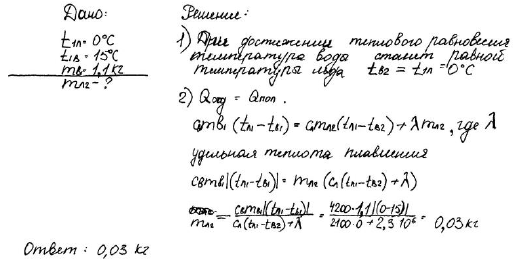 Дано:
t₁л = 0°C
t₁в = 15°C
mв = 1,1 кг
mл₂ - ?
Решение:
1) При достижении теплового равновесия
температура воды станет равной
температуры льда tв2 = t1л = 0°C
2) Qотд = Qпол.
cвmв₁(tл₁-tв₁) = cлmл₂(tл₁-tв2) + λmл₂, где λ
удельная теплота плавления
cвmв₁|(tл₁-tв₁)| = mл₂(cл(tл₁-tв2) + λ)
mл₂ = cвmв₁|(tл₁-tв₁)| / cл(tл₁-tв2)+λ = 4200·1,1|(0-15)| / 2100·0 + 2,3·10⁶ = 0,03 кг
Ответ: 0,03 кг